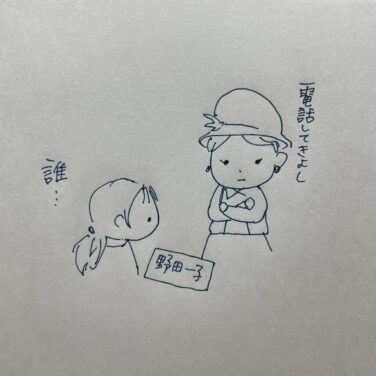 電話してきよし
誰…
野田一子